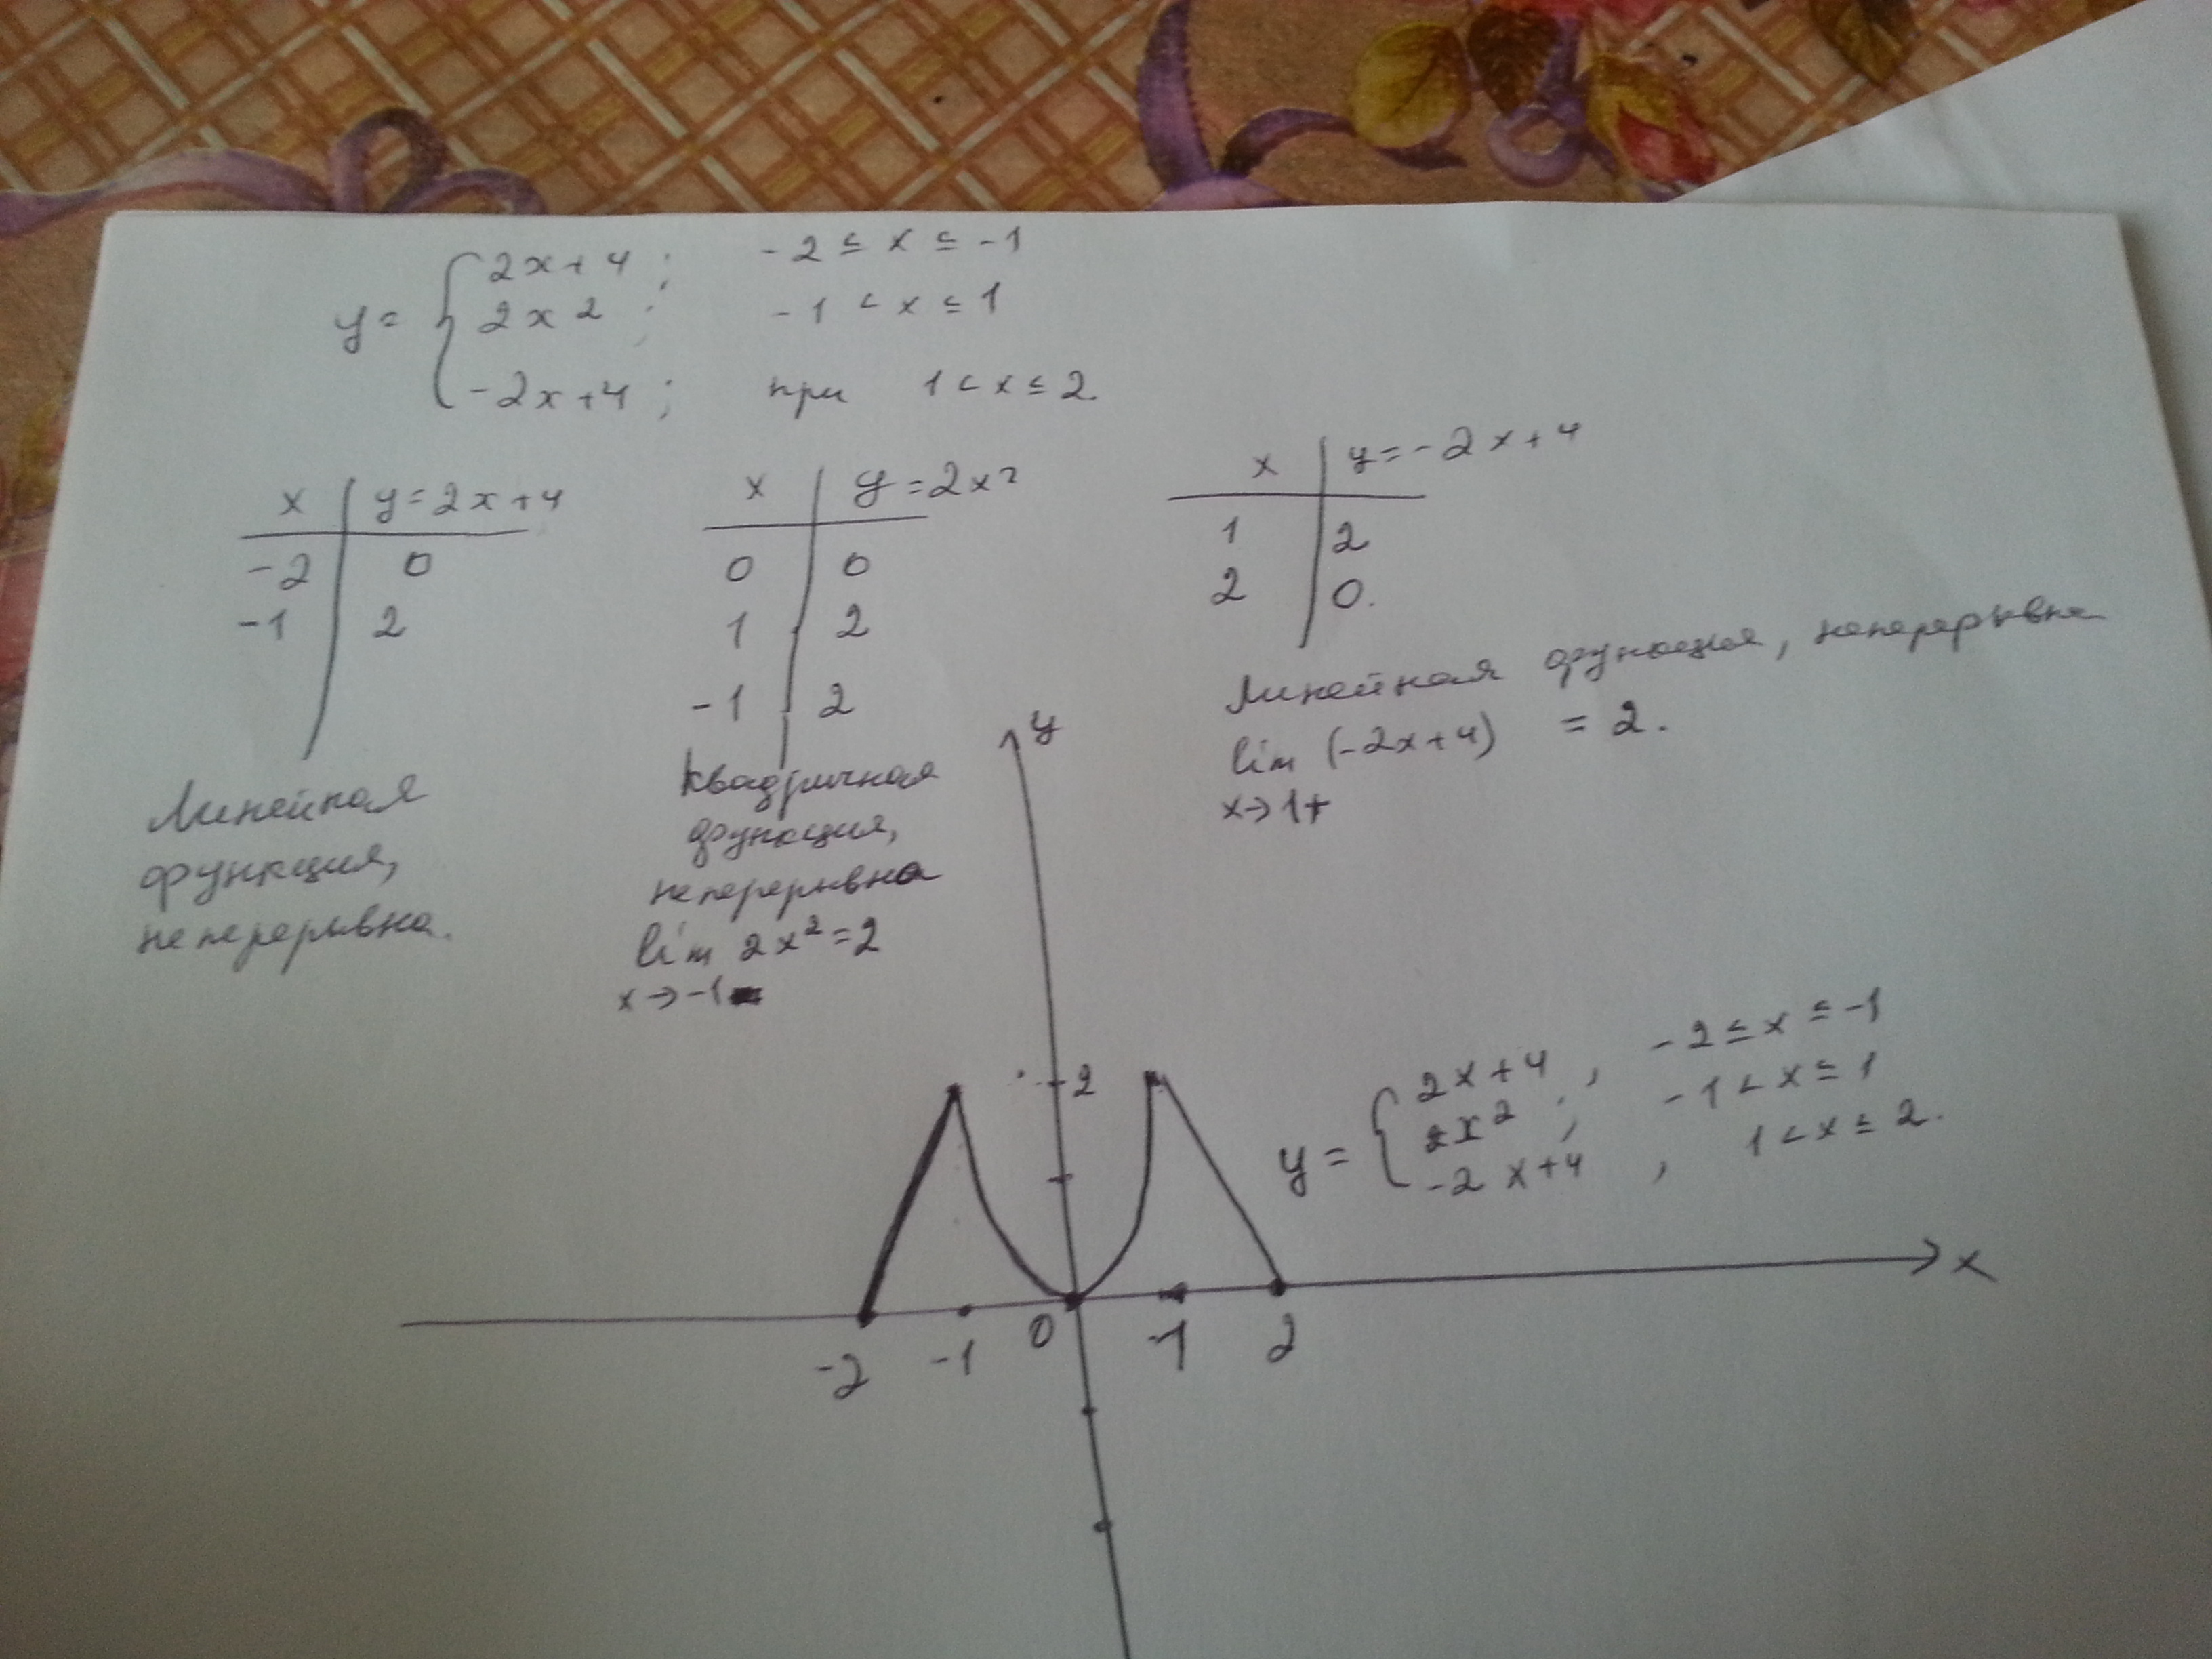 y = { 2x+4 ; -2 ≤ x ≤ -1
2x² ; -1 < x ≤ 1
-2x+4 ; при 1 < x ≤ 2.
x | y=2x+4
-2 | 0
-1 | 2
Линейная
функция,
непрерывна.
x | y=2x²
0 | 0
1 | 2
-1 | 2
Квадричная
функция,
непрерывна
lim 2x²=2
x→-1
x | y=-2x+4
1 | 2
2 | 0.
Линейная функция, непрерывна
lim (-2x+4) = 2.
x→1+
y
2
y = { 2x+4 , -2 ≤ x ≤ -1
2x² ; -1 < x ≤ 1
-2x+4 , 1 < x ≤ 2.
x
-2 -1 0 1 2